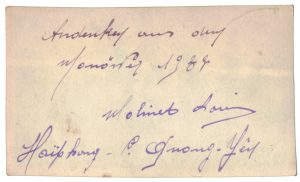 Andenken aus den
Manöver 19
Molinet Louis
Haïphong - P. Quang-Yên